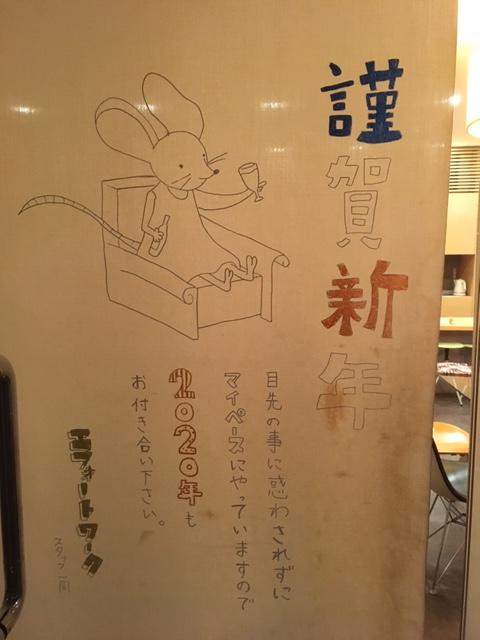 謹賀新年
目先の事に惑わされずに
マイペースにやっていますので
2020年も
お付き合い下さい。
エフォートワーク
スタッフ一同